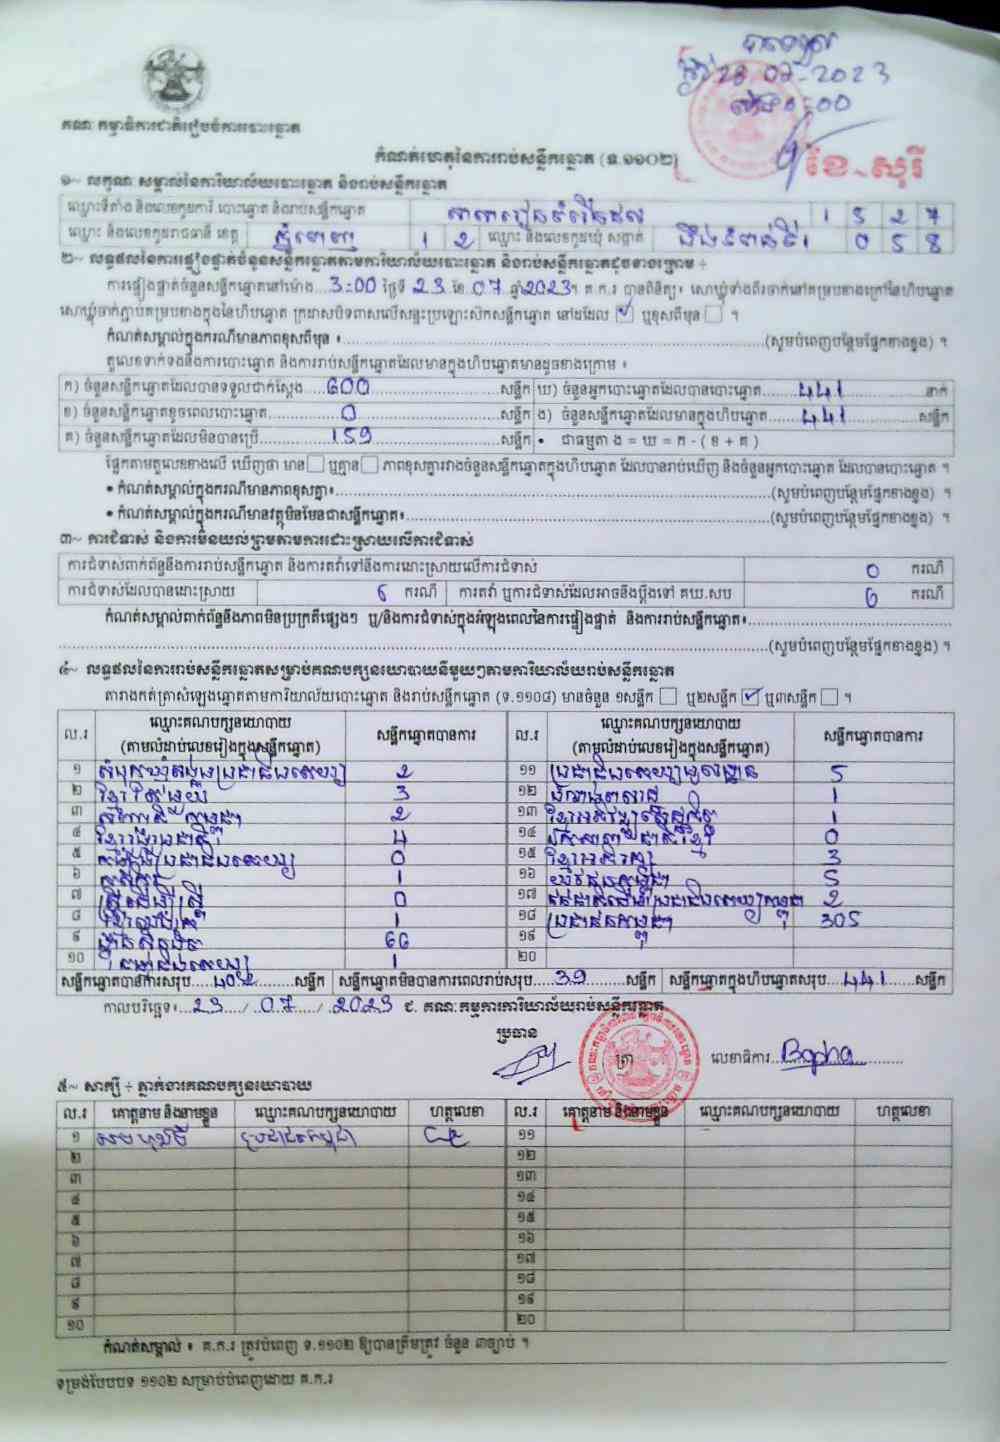 បានឃើញ
ថ្ងៃ 23.07.2023
ម៉ោង :00
គណៈកម្មាធិការជាតិរៀបចំការបោះឆ្នោត
កំណត់ហេតុនៃការរាប់សន្លឹកឆ្នោត (ទ.១១០២)
ខៃ សុរី
១~ លក្ខណៈសម្គាល់នៃការិយាល័យបោះឆ្នោត និងរាប់សន្លឹកឆ្នោត
ឈ្មោះទីតាំង និងលេខកូដការិ.បោះឆ្នោត និងរាប់សន្លឹកឆ្នោត 1 5 2 7
ឈ្មោះ និងលេខកូដរាជធានី ខេត្ត ភ្នំពេញ 1 2 ឈ្មោះ និងលេខកូដឃុំ សង្កាត់ បឹងទំពន់ទី១ 0 5 8
២~ លទ្ធផលនៃការផ្ទៀងផ្ទាត់ចំនួនសន្លឹកឆ្នោតតាមការិយាល័យបោះឆ្នោត និងរាប់សន្លឹកឆ្នោតដូចខាងក្រោម ÷
ការផ្ទៀងផ្ទាត់ចំនួនសន្លឹកឆ្នោតនៅម៉ោង 3:00 ថ្ងៃទី 23 ខែ 07 ឆ្នាំ 2023។ គ.ក.រ បានពិនិត្យ៖ សោឃ្លុំទាំងពីរចាក់នៅគម្របខាងក្រៅនៃហិបឆ្នោត
សោឃ្លុំចាក់ភ្ជាប់គម្របខាងក្នុងនៃហិបឆ្នោត ក្រដាសបិទពាសលើសន្ទះប្រឡោះសិកសន្លឹកឆ្នោត នៅដដែល ☑ ឬខុសពីមុន ☐ ។
កំណត់សម្គាល់ក្នុងករណីមានភាពខុសពីមុន ៖ (សូមបំពេញបន្ថែមផ្នែកខាងខ្នង) ។
តួលេខទាក់ទងនឹងការបោះឆ្នោត និងការរាប់សន្លឹកឆ្នោតដែលមានក្នុងហិបឆ្នោតមានដូចខាងក្រោម ៖
ក) ចំនួនសន្លឹកឆ្នោតដែលបានទទួលជាក់ស្តែង 600 សន្លឹក ឃ) ចំនួនអ្នកបោះឆ្នោតដែលបានបោះឆ្នោត 441 នាក់
ខ) ចំនួនសន្លឹកឆ្នោតខូចពេលបោះឆ្នោត 0 សន្លឹក ង) ចំនួនសន្លឹកឆ្នោតដែលមានក្នុងហិបឆ្នោត 441 សន្លឹក
គ) ចំនួនសន្លឹកឆ្នោតដែលមិនបានប្រើ 159 សន្លឹក • ជាធម្មតា ង = ឃ = ក - ( ខ + គ )
ផ្អែកតាមតួលេខខាងលើ ឃើញថា មាន ☐ ឬគ្មាន ☐ ភាពខុសគ្នារវាងចំនួនសន្លឹកឆ្នោតក្នុងហិបឆ្នោត ដែលបានរាប់ឃើញ និងចំនួនអ្នកបោះឆ្នោត ដែលបានបោះឆ្នោត ។
• កំណត់សម្គាល់ក្នុងករណីមានភាពខុសគ្នា៖ (សូមបំពេញបន្ថែមផ្នែកខាងខ្នង) ។
• កំណត់សម្គាល់ក្នុងករណីមានវត្ថុមិនមែនជាសន្លឹកឆ្នោត៖ (សូមបំពេញបន្ថែមផ្នែកខាងខ្នង) ។
៣~ ការជំទាស់ និងការមិនយល់ព្រមតាមការដោះស្រាយលើការជំទាស់
ការជំទាស់ពាក់ព័ន្ធនឹងការរាប់សន្លឹកឆ្នោត និងការតវ៉ាទៅនឹងការដោះស្រាយលើការជំទាស់ 0 ករណី
ការជំទាស់ដែលបានដោះស្រាយ 6 ករណី ការតវ៉ា ឬការជំទាស់ដែលអាចនឹងប្តឹងទៅ គឃ.សប 6 ករណី
កំណត់សម្គាល់ពាក់ព័ន្ធនឹងភាពមិនប្រក្រតីផ្សេងៗ ឬ/និងការជំទាស់ក្នុងអំឡុងពេលនៃការផ្ទៀងផ្ទាត់ និងការរាប់សន្លឹកឆ្នោត៖
(សូមបំពេញបន្ថែមផ្នែកខាងខ្នង) ។
៤~ លទ្ធផលនៃការរាប់សន្លឹកឆ្នោតសម្រាប់គណបក្សនយោបាយនីមួយៗតាមការិយាល័យរាប់សន្លឹកឆ្នោត
តារាងកត់ត្រាសំឡេងឆ្នោតតាមការិយាល័យបោះឆ្នោត និងរាប់សន្លឹកឆ្នោត (ទ.១១០៨) មានចំនួន ១សន្លឹក ☐ ឬ២សន្លឹក ☑ ឬ៣សន្លឹក ☐ ។
ល.រ ឈ្មោះគណបក្សនយោបាយ (តាមលំដាប់លេខរៀងក្នុងសន្លឹកឆ្នោត) សន្លឹកឆ្នោតបានការ ល.រ ឈ្មោះគណបក្សនយោបាយ (តាមលំដាប់លេខរៀងក្នុងសន្លឹកឆ្នោត) សន្លឹកឆ្នោតបានការ
១ សំបុកឃ្មុំសង្គមប្រជាធិបតេយ្យ 2 ១១ 5
២ ខ្មែររួបរួមជាតិ 3 ១២ 1
៣ 2 ១៣ 1
៤ 4 ១៤ 0
៥ 0 ១៥ ខ្មែរអភិរក្ស 3
៦ កសិករ 1 ១៦ យុវជនកម្ពុជា 5
៧ ស្ត្រីដើម្បីស្ត្រី 0 ១៧ 2
៨ 1 ១៨ ប្រជាជនកម្ពុជា 305
៩ ហ៊្វុនស៊ិនប៉ិច 66 ១៩
១០ 1 ២០
សន្លឹកឆ្នោតបានការសរុប 402 សន្លឹក សន្លឹកឆ្នោតមិនបានការពេលរាប់សរុប 39 សន្លឹក សន្លឹកឆ្នោតក្នុងហិបឆ្នោតសរុប 441 សន្លឹក
កាលបរិច្ឆេទ៖ 23 / 07 / 2023 ជ. គណៈកម្មការការិយាល័យរាប់សន្លឹកឆ្នោត
ប្រធាន
ត្រា លេខាធិការ Bopha
៥~ សាក្សី ÷ ភ្នាក់ងារគណបក្សនយោបាយ
ល.រ គោត្តនាម និងនាមខ្លួន ឈ្មោះគណបក្សនយោបាយ ហត្ថលេខា ល.រ គោត្តនាម និងនាមខ្លួន ឈ្មោះគណបក្សនយោបាយ ហត្ថលេខា
១ ប្រជាជនកម្ពុជា ១១
២ ១២
៣ ១៣
៤ ១៤
៥ ១៥
៦ ១៦
៧ ១៧
៨ ១៨
៩ ១៩
១០ ២០
កំណត់សម្គាល់ ៖ គ.ក.រ ត្រូវបំពេញ ទ.១១០២ ឱ្យបានត្រឹមត្រូវ ចំនួន ៣ច្បាប់ ។
ទម្រង់បែបបទ ១១០២ សម្រាប់បំពេញដោយ គ.ក.រ